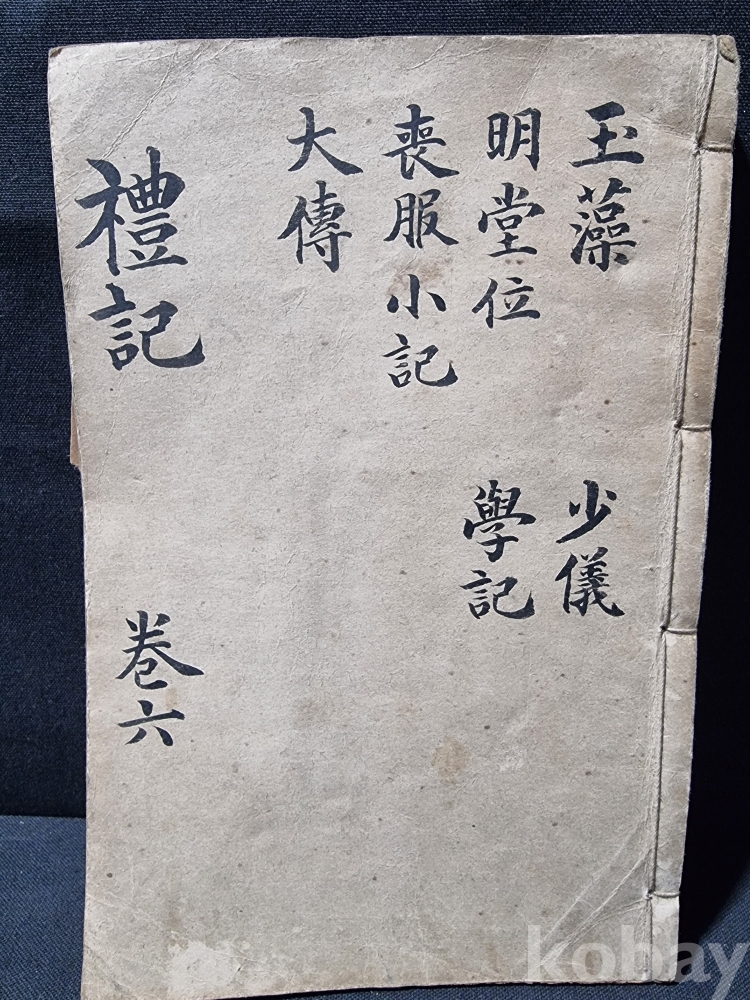 玉藻
明堂位
喪服小記
大傳
少儀
學記
禮記
卷六
kobay